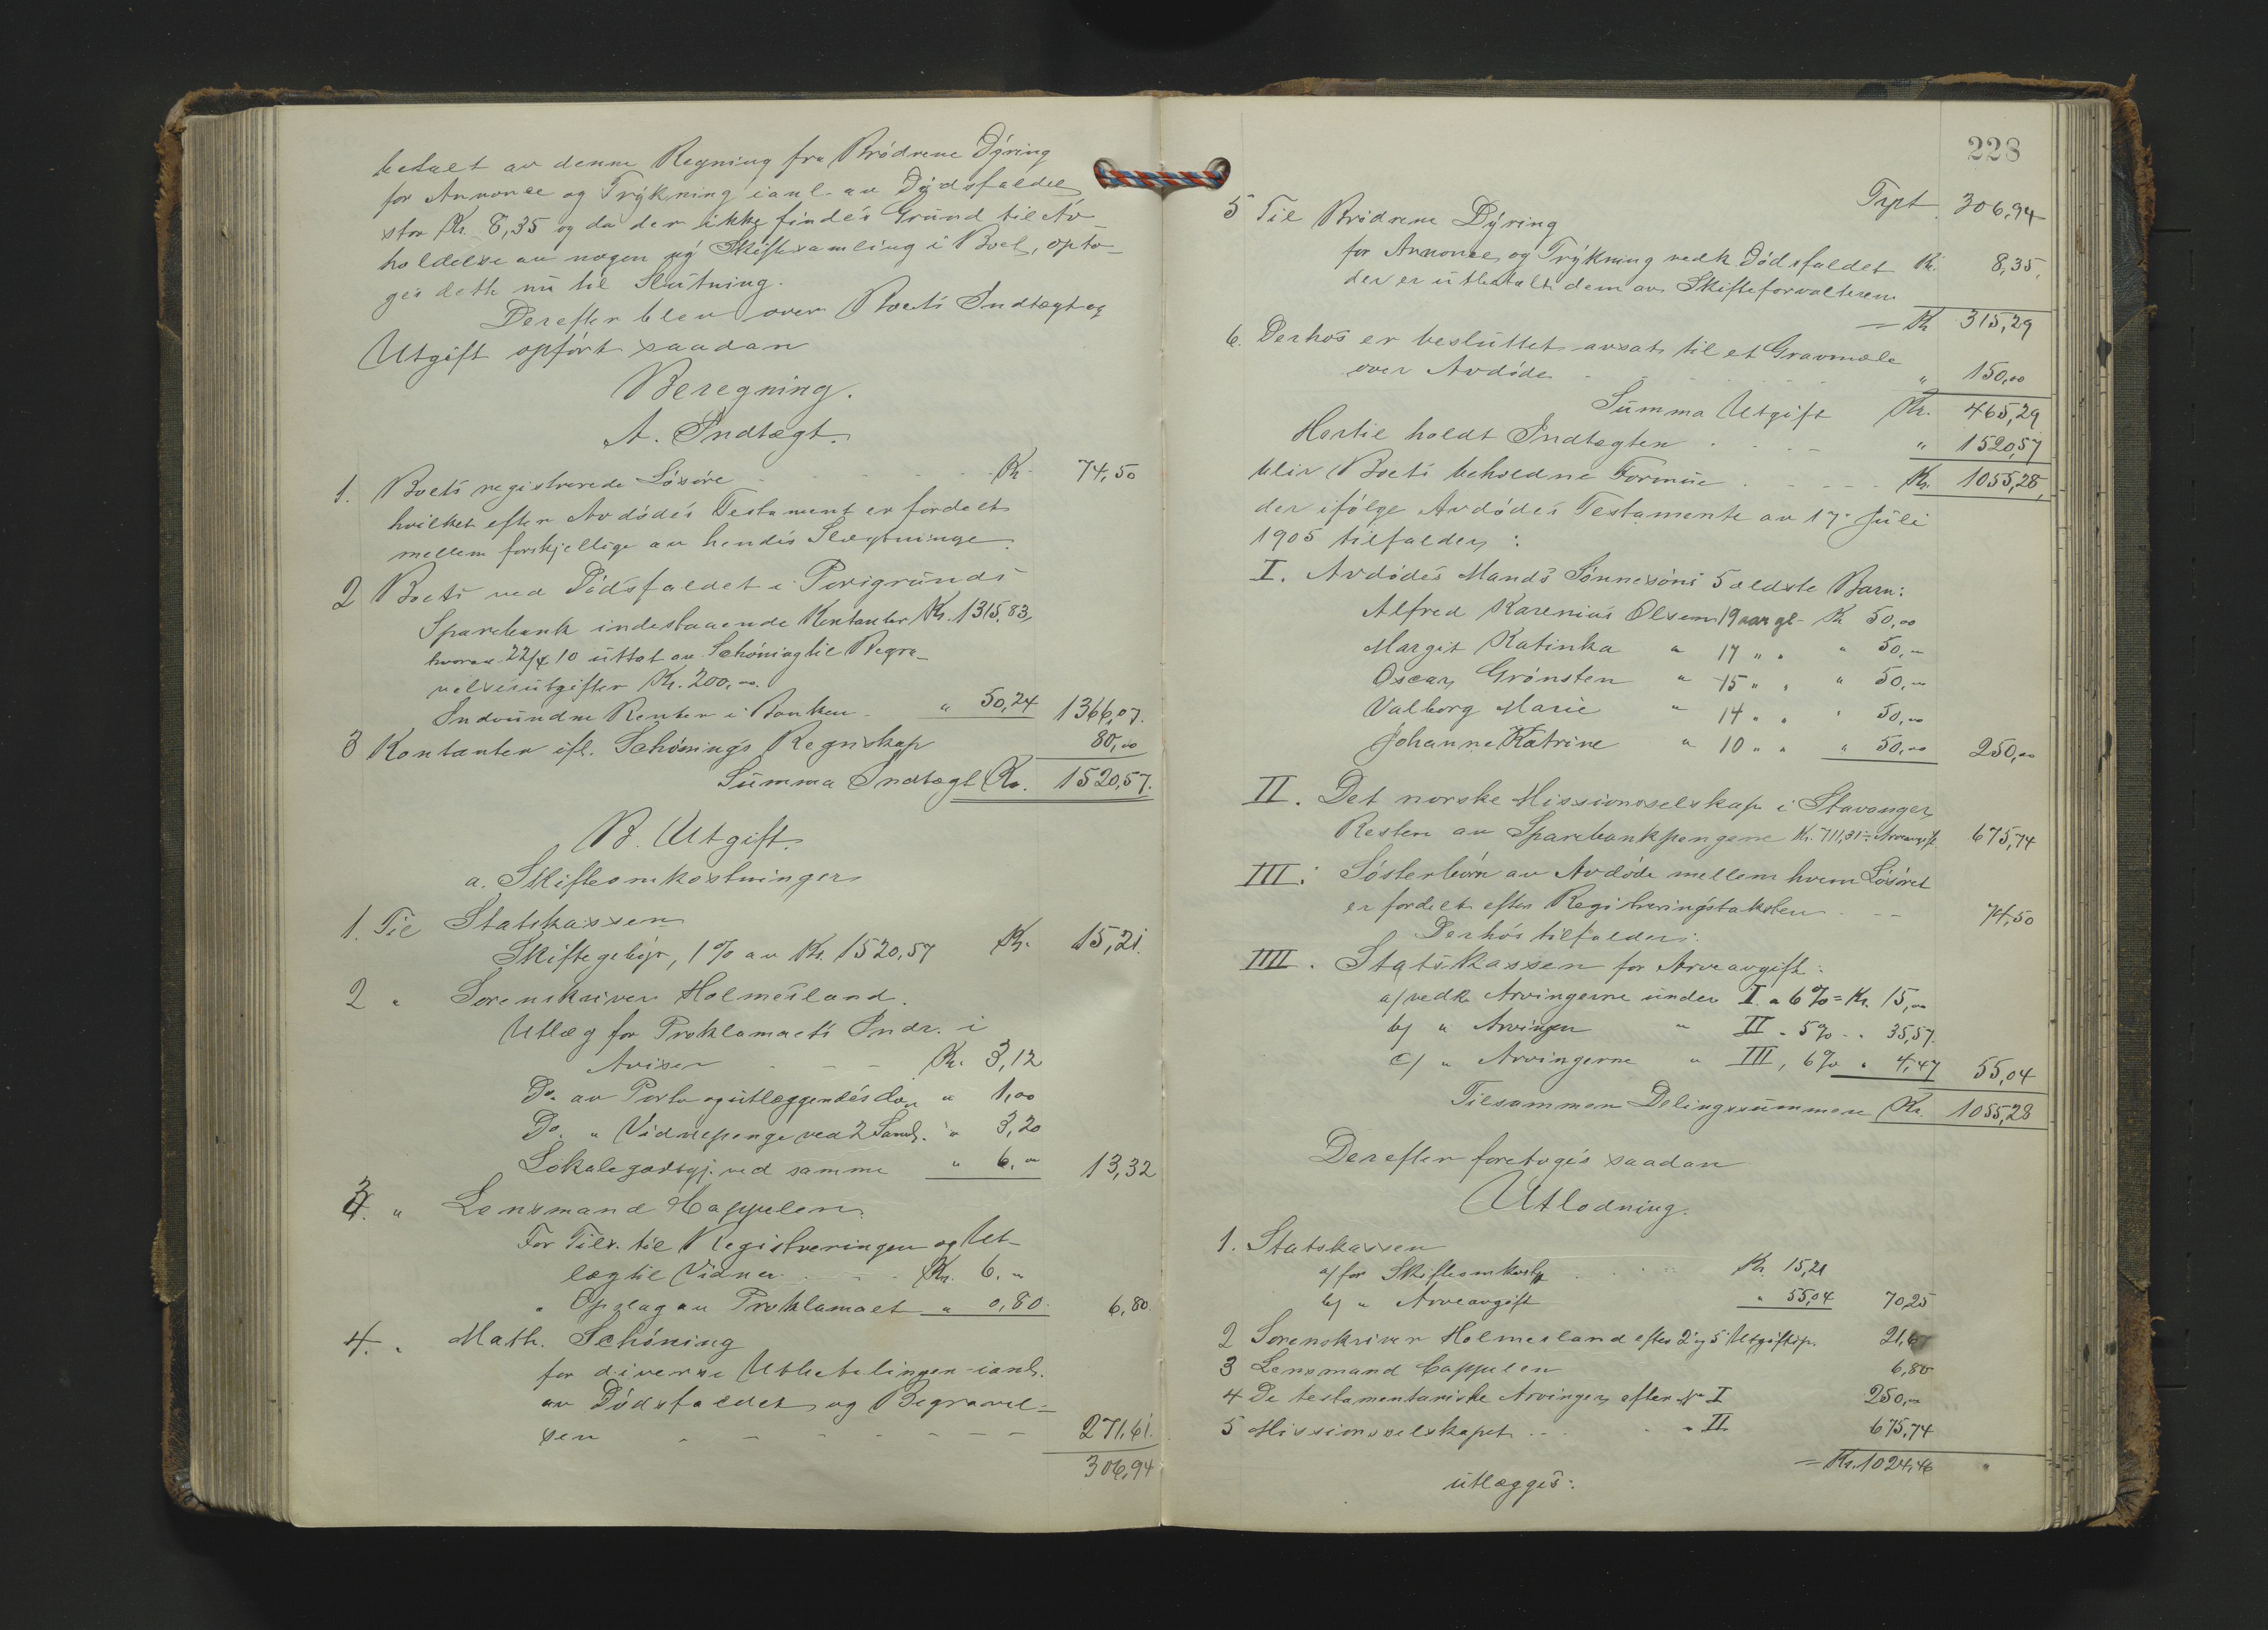 betalt av denne Regning fra Brødrene Dyring
for Annonce og Trykning i anl. av Dødsfaldet
stor Kr. 8,35 og da der ikke findes Grund til Av-
holdelse av nogen ny Skiftesamling i Boet, opto-
ges dette nu til Slutning.
Derefter blev over Boets Indtægt og
Utgift opført saadan
Beregning.
A. Indtægt.
1. Boets registrerede Løsøre - - - Kr. 74,50
hvilket efter Avdødes Testament er fordelt
mellem forskjellige av hendes Slægtninge.
2 Boets ved Dødsfaldet i Porsgrunds
Sparebank indestaaende Kontanter Kr. 1315,83,
hvorav 22/4 10 uttat av Schøning til Begra-
velsesutgifter Kr. 200,00.
Indvundne Renter i Banken - " 50,24 1366,07.
3 Kontanter ifl. Schønings Regnskap 80,00
Summa Indtægt Kr. 1520,57.
B. Utgift.
a. Skifteomkostninger
1. Til Statskassen
Skiftegebyr, 1% av Kr. 1520,57 Kr. 15,21.
2 " Sorenskriver Holmesland.
Utlæg for Proklamaets Indr. i
Aviser - - - Kr. 3,12
Do. av Porto og utlæggendes do. " 1,00
Do. " Vidnepenge ved 2 Saml. " 3,20
Lokalegodtgj. ved samme " 6,00 13,32
3. " Lensmand Cappelen
For Tils. til Registreringen og Ut-
læg til Vidner - - - Kr. 6,00
" Opslag av Proklamaet " 0,80 6,80.
4. " Math. Schøning
for diverse Utbetalinger i anl.
av Dødsfaldet og Begravel-
sen - - - - - - - 271,61.
306,94
228
Trpt. 306,94
5 Til Brødrene Dyring
for Annonce og Trykning vedk. Dødsfaldet Kr. 8,35.
der er utbetalt dem av Skifteforvalteren
= Kr. 315,29
6. Derhos er besluttet avsat til et Gravmæle
over Avdøde - - - " 150,00
Summa Utgift Kr. 465,29
Hertil holdt Indtægten - - - " 1520,57
blir Boets beholdne Formue - - - Kr. 1055,28,
der ifølge Avdødes Testamente av 17. Juli
1905 tilfalder:
I. Avdødes Mands Sønnesøns 5 ældste Barn:
Alfred Karenius Olsen 19 aar gl. Kr. 50,00
Margit Katinka " 17 " " " 50,00
Oscar Grønsten " 15 " " " 50,00
Valborg Marie " 14 " " " 50,00
Johanne Katrine " 10 " " " 50,00 250,00
II. Det norske Missionsselskap i Stavanger
Resten av Sparebankpengene Kr. 711,31 ÷ Arveavgift 675,74
III: Søsterbørn av Avdøde mellem hvem Løsøret
er fordelt efter Registreringstaksten - - 74,50
Derhos tilfalder:
IIII. Statskassen for Arveavgift:
a/ vedk. Arvingerne under I. a 6% = Kr. 15,00
b/ " Arvingen " II " 5% " " 35,57.
c/ " Arvingerne " III, 6% " 4,47 55,04
Tilsammen Delingssummen Kr. 1055,28
Derefter foretoges saadan
Utlodning.
1. Statskassen
a/ for Skifteomkostn. - - - Kr. 15,21
b/ " Arveavgift " 55,04 70,25
2 Sorenskriver Holmesland efter 2 og 5 Utgiftsp.
3 Lensmand Cappelen 6,80
4 De testamentariske Arvinger efter No. I 250,00
5 Missionsselskapet - - - " II 675,74
= Kr. 1024,46
utlægges: